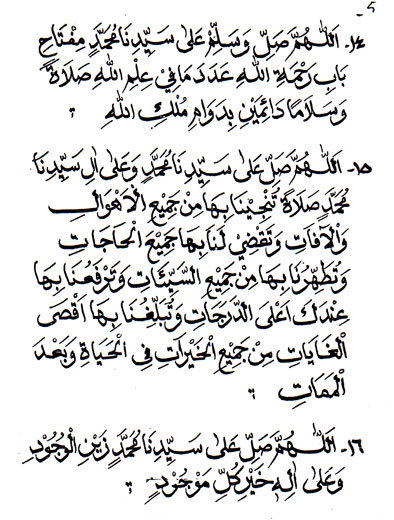 ٥
١٤- اَللّٰهُمَّ صَلِّ وَسَلِّمْ عَلٰى سَيِّدِنَا مُحَمَّدٍ مِفْتَاحِ
بَابِ رَحْمَةِ اللهِ عَدَدَ مَا فِيْ عِلْمِ اللهِ صَلَاةً
وَسَلَامًا دَائِمَيْنِ بِدَوَامِ مُلْكِ اللهِ
١٥- اَللّٰهُمَّ صَلِّ عَلٰى سَيِّدِنَا مُحَمَّدٍ وَعَلٰى اٰلِ سَيِّدِنَا
مُحَمَّدٍ صَلَاةً تُنْجِيْنَا بِهَا مِنْ جَمِيْعِ الْاَهْوَالِ
وَالْاٰفَاتِ وَتَقْضِيْ لَنَا بِهَا جَمِيْعَ الْحَاجَاتِ
وَتُطَهِّرُنَا بِهَا مِنْ جَمِيْعِ السَّيِّئَاتِ وَتَرْفَعُنَا بِهَا
عِنْدَكَ اَعْلَى الدَّرَجَاتِ وَتُبَلِّغُنَا بِهَا اَقْصَى
الْغَايَاتِ مِنْ جَمِيْعِ الْخَيْرَاتِ فِى الْحَيَاةِ وَبَعْدَ
الْمَمَاتِ
١٦- اَللّٰهُمَّ صَلِّ عَلٰى سَيِّدِنَا مُحَمَّدٍ زَيْنِ الْوُجُوْدِ
وَعَلٰى اٰلِهٖ خَيْرِ كُلِّ مَوْجُوْدٍ